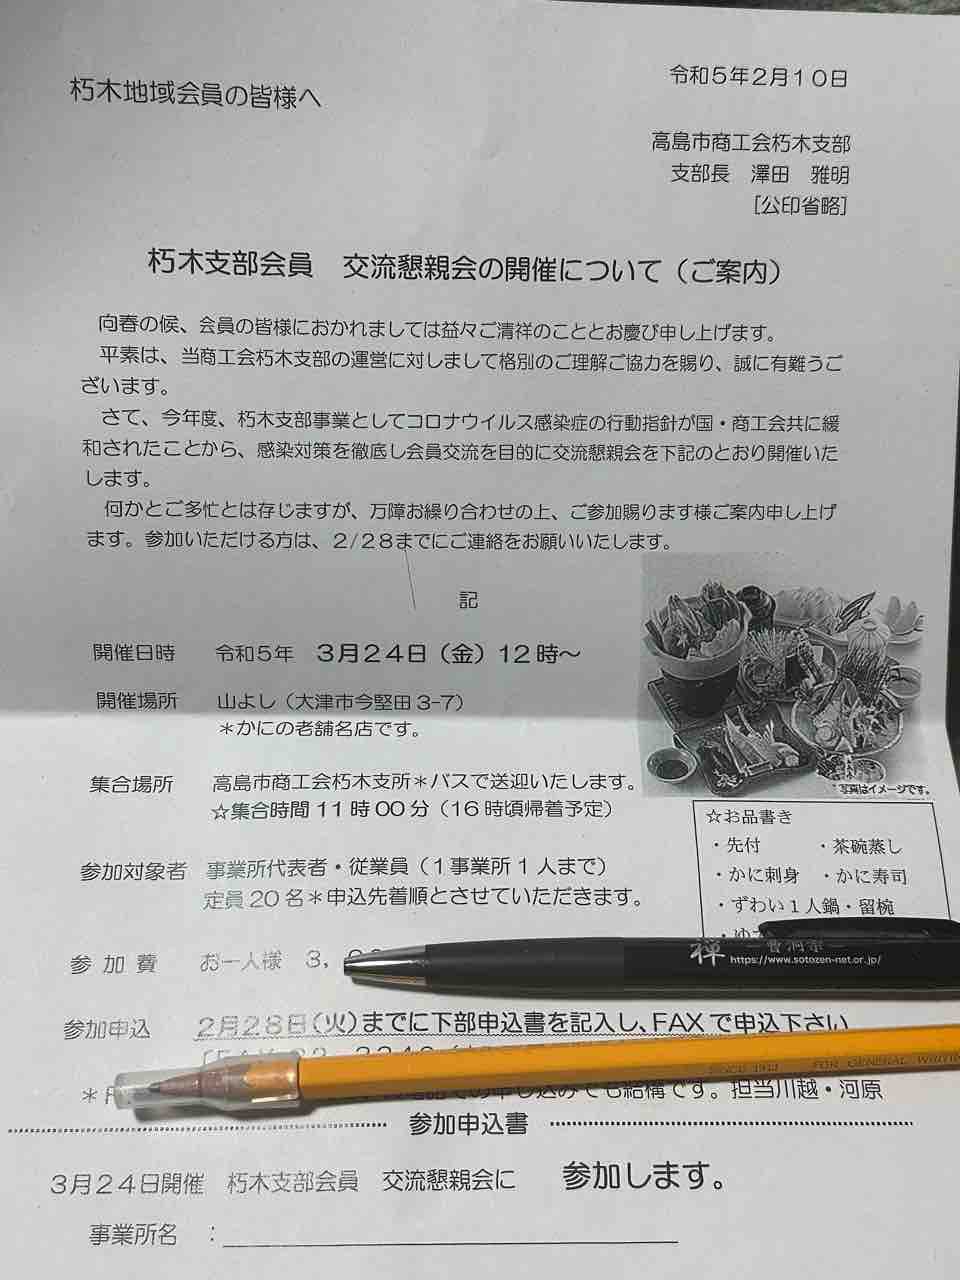 令和5年2月10日
朽木地域会員の皆様へ
高島市商工会朽木支部
支部長　澤田　雅明
[公印省略]
朽木支部会員　交流懇親会の開催について（ご案内）
向春の候、会員の皆様におかれましては益々ご清祥のこととお慶び申し上げます。
平素は、当商工会朽木支部の運営に対しまして格別のご理解ご協力を賜り、誠に有難うご
ざいます。
さて、今年度、朽木支部事業としてコロナウイルス感染症の行動指針が国・商工会共に緩
和されたことから、感染対策を徹底し会員交流を目的に交流懇親会を下記のとおり開催いた
します。
何かとご多忙とは存じますが、万障お繰り合わせの上、ご参加賜ります様ご案内申し上げ
ます。参加いただける方は、2/28までにご連絡をお願いいたします。
記
開催日時　令和5年　3月24日（金）12時～
開催場所　山よし（大津市今堅田3-7）
＊かにの老舗名店です。
集合場所　高島市商工会朽木支所＊バスで送迎いたします。
☆集合時間11時00分（16時頃帰着予定）
*写真はイメージです。
☆お品書き
・先付　・茶碗蒸し
・かに刺身　・かに寿司
・ずわい1人鍋・留椀
参加対象者　事業所代表者・従業員（1事業所1人まで）
定員20名＊申込先着順とさせていただきます。
参加費　お一人様　3,
禅
https://www.sotozen-net.or.jp/
参加申込　2月28日（火）までに下部申込書を記入し、FAXで申込下さい
SINCE 1913　FOR GENERAL WRITING
の申し込みでも結構です。担当川越・河原
参加申込書
3月24日開催　朽木支部会員　交流懇親会に　参加します。
事業所名　：